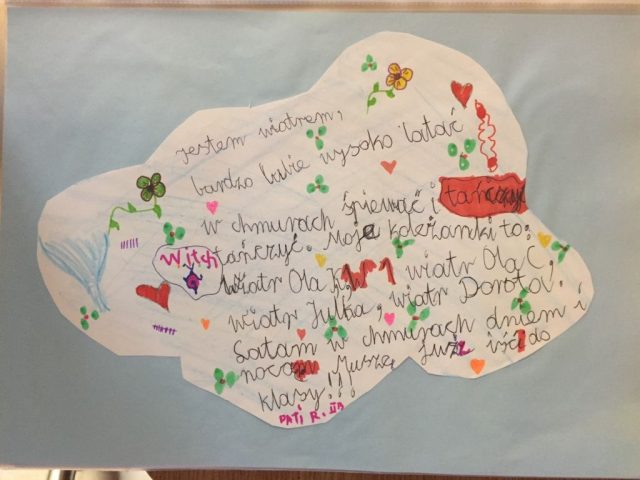 jestem wiatrem,
bardzo lubie wysoko latać
w chmurach śpiewać i tańczyć
tańczyć. Moje koleżanki to:
Witch
wiatr Ola K, wiatr Ola C,
wiatr Julka, wiatr Dorota.
Latam w chmurach dniem i
nocom Muszę już iść do
klasy!!!
PATI R.